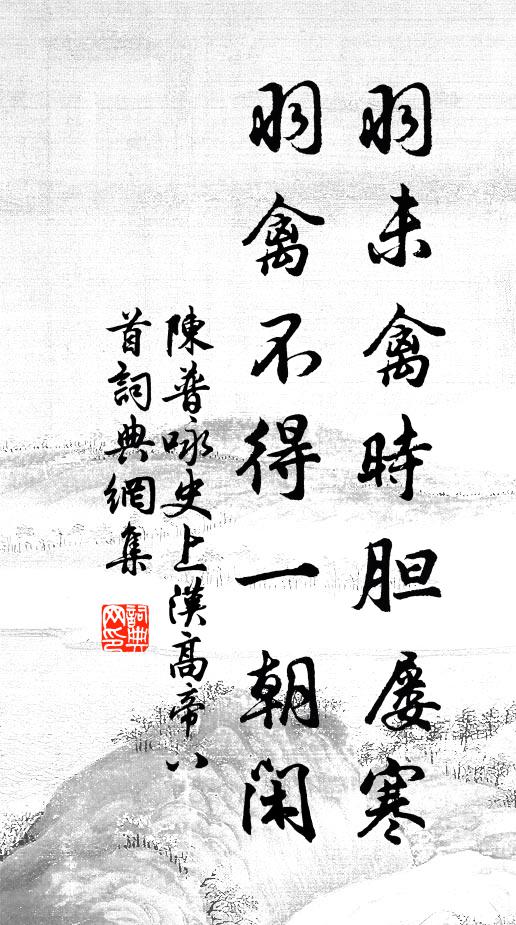 羽未禽時胆屡寒
羽禽不得一朝闲
陳普咏史上漢高帝八
首詞典網集
詞典网印